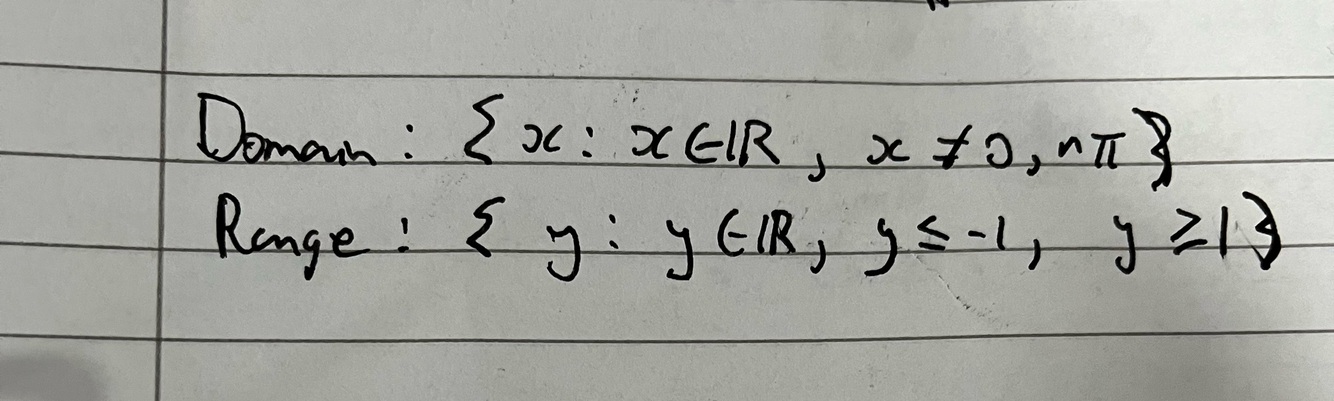 Domain : { x : x ∈ ℝ , x ≠ 0, nπ }
Range : { y : y ∈ ℝ, y ≤ -1, y ≥ 1 }